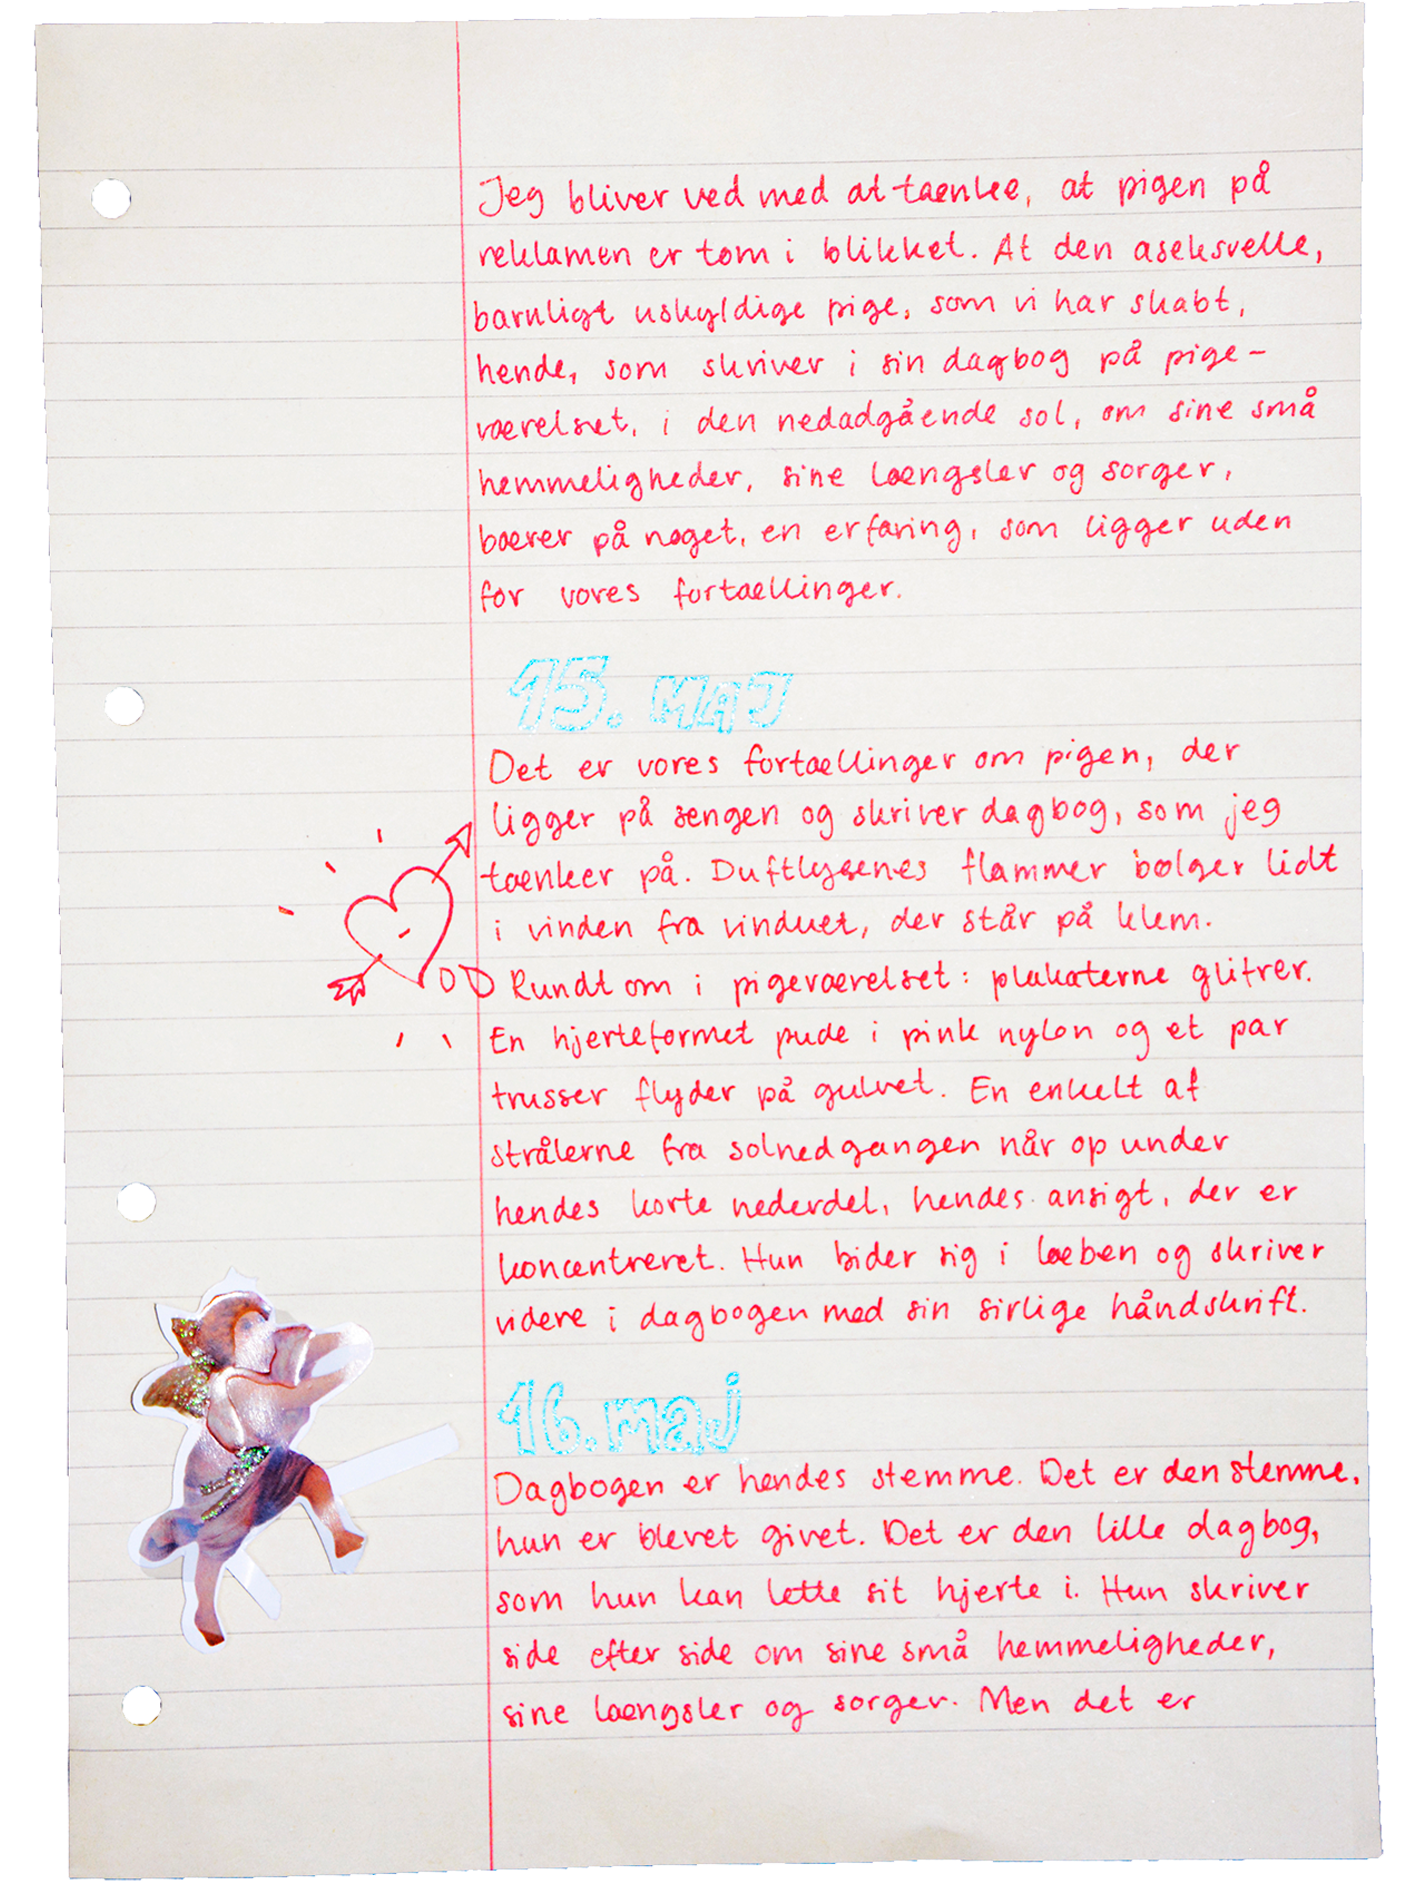 Jeg bliver ved med at tænke, at pigen på
reklamen er tom i blikket. At den aseksuelle,
barnligt uskyldige pige, som vi har skabt,
hende, som skriver i sin dagbog på pige-
værelset, i den nedadgående sol, om sine små
hemmeligheder, sine længsler og sorger,
bærer på noget, en erfaring, som ligger uden
for vores fortællinger.
15. MAJ
Det er vores fortællinger om pigen, der
ligger på sengen og skriver dagbog, som jeg
tænker på. Duftlysenes flammer bølger lidt
i vinden fra vinduet, der står på klem.
Rundt om i pigeværelset: plakaterne glitrer.
En hjerteformet pude i pink nylon og et par
trusser flyder på gulvet. En enkelt af
strålerne fra solnedgangen når op under
hendes korte nederdel, hendes ansigt, der er
koncentreret. Hun bider sig i læben og skriver
videre i dagbogen med sin sirlige håndskrift.
16. maj
Dagbogen er hendes stemme. Det er den stemme,
hun er blevet givet. Det er den lille dagbog,
som hun kan lette sit hjerte i. Hun skriver
side efter side om sine små hemmeligheder,
sine længsler og sorger. Men det er